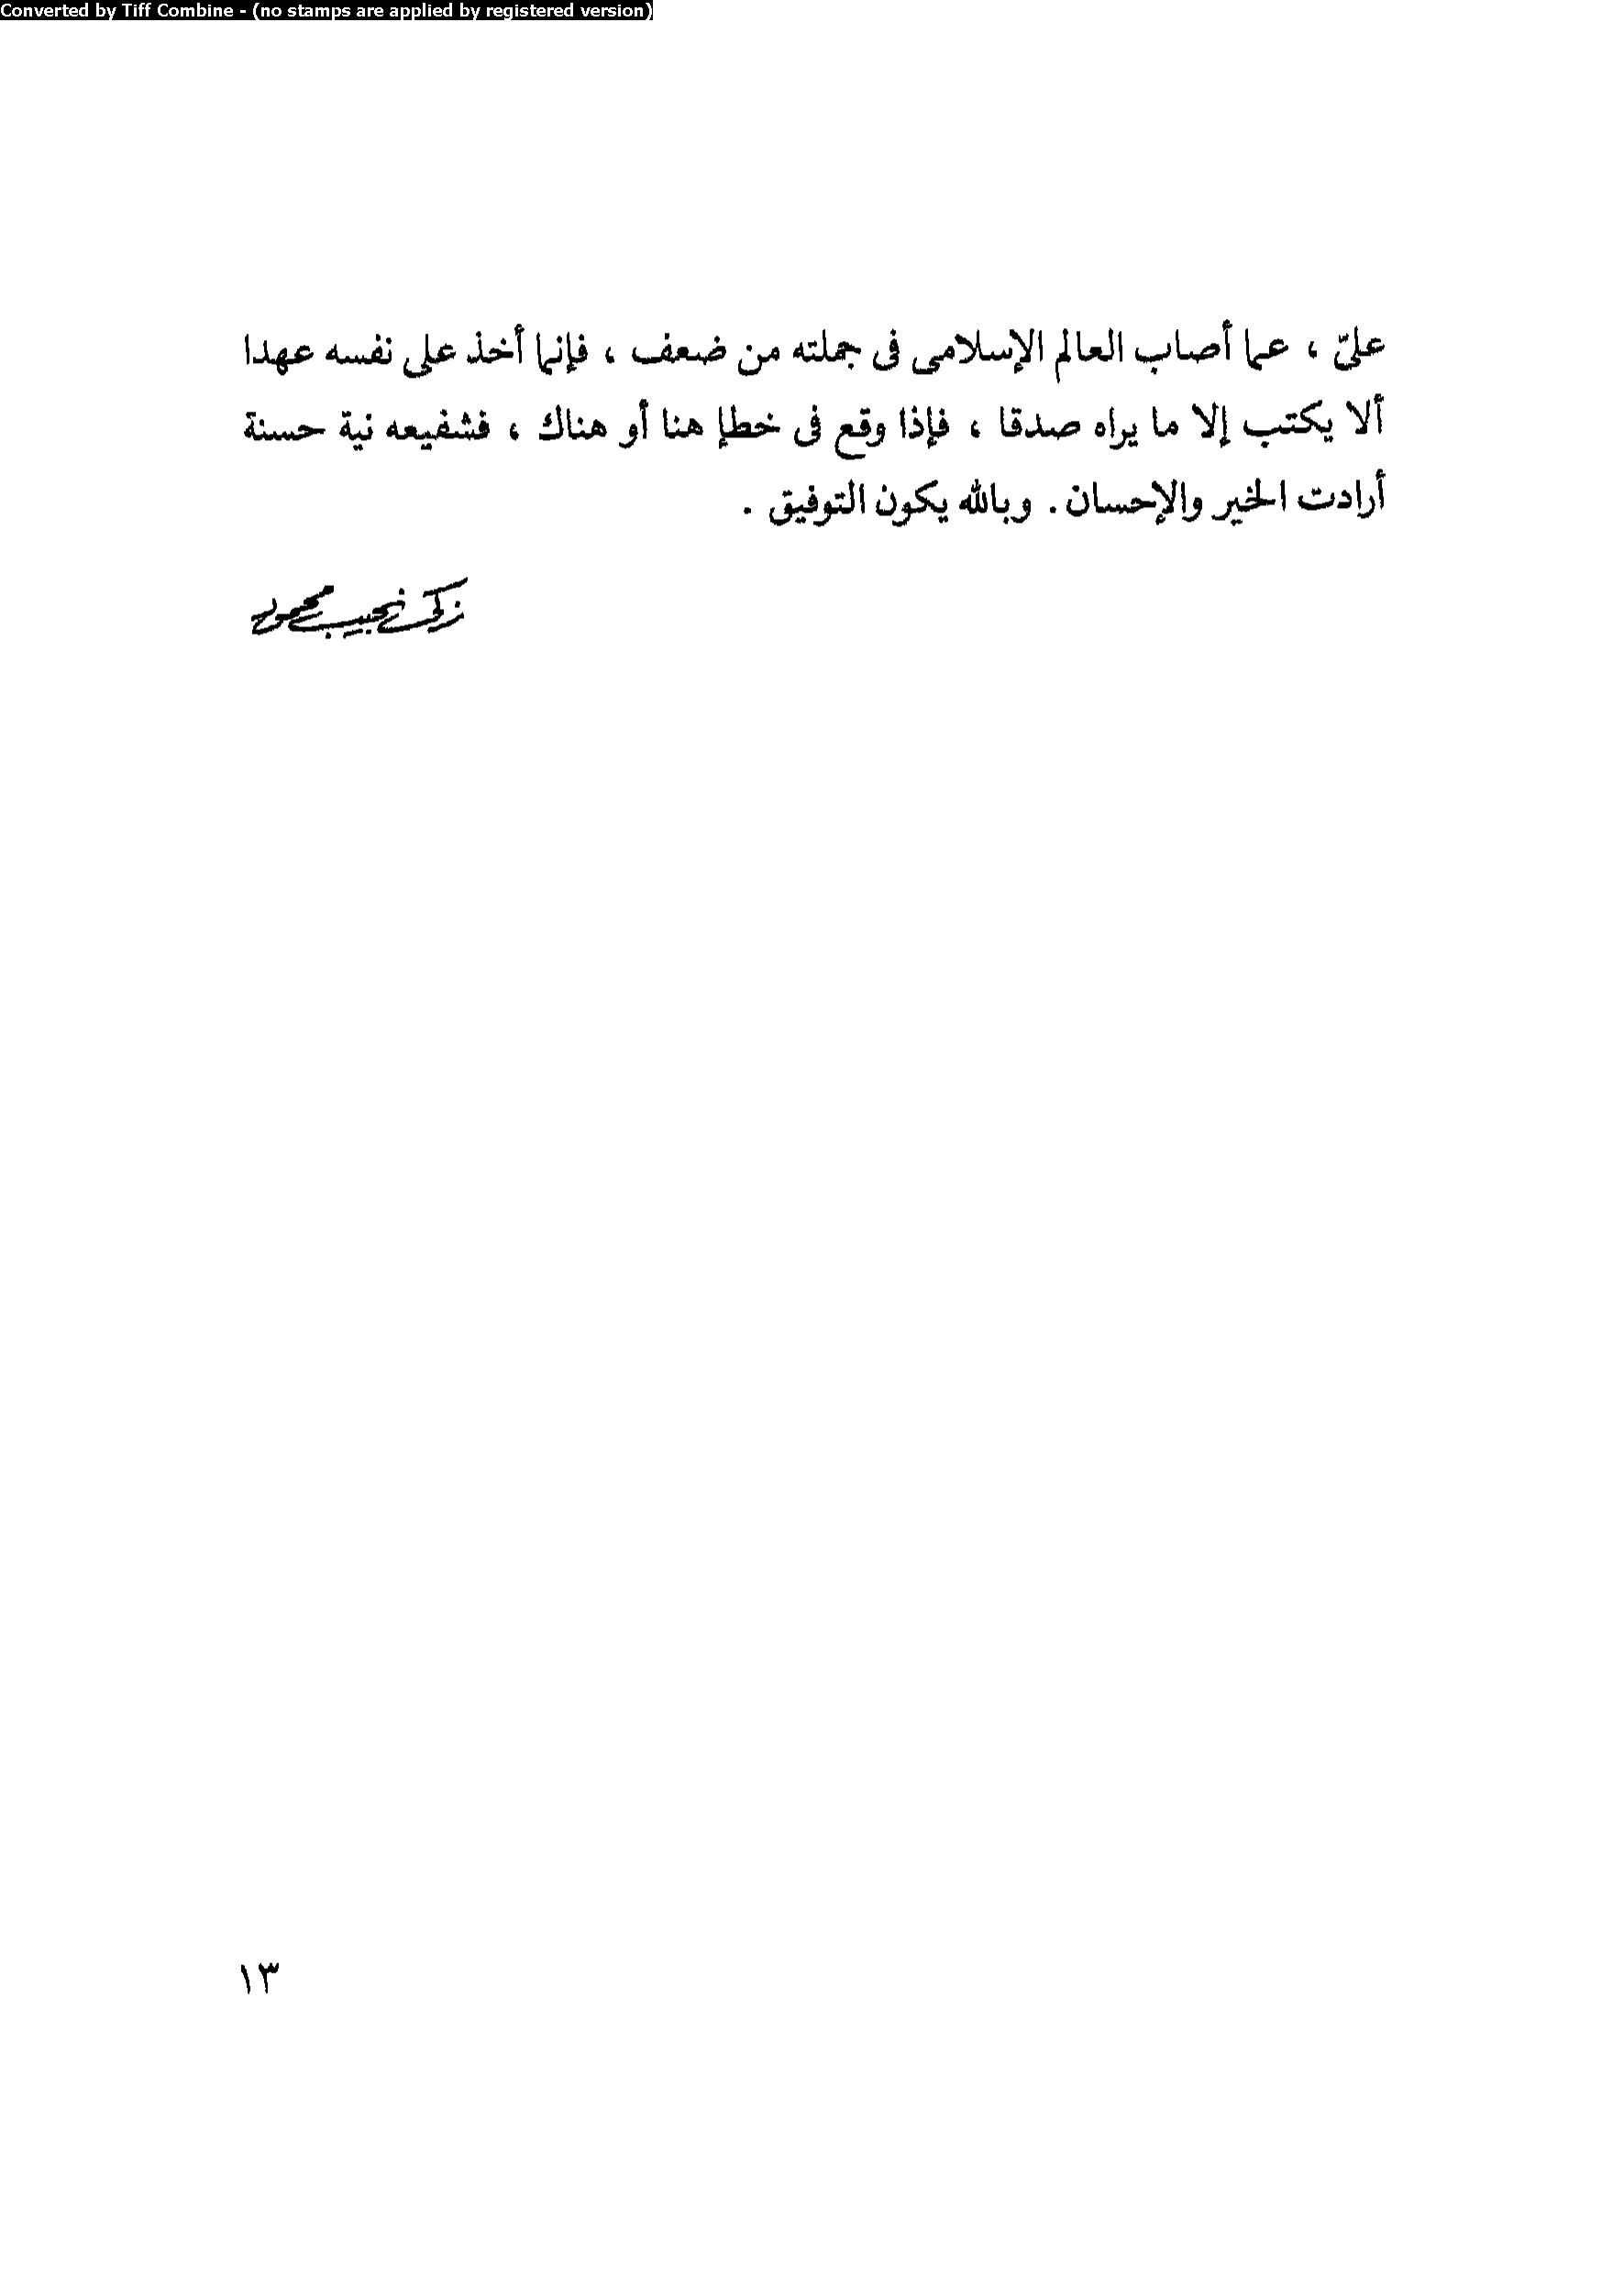 Converted by Tiff Combine - (no stamps are applied by registered version)
علىّ ، عما أصاب العالم الإسلامى فى جملته من ضعف ، فإنما أخذ على نفسه عهدا
ألا يكتب إلا ما يراه صدقا ، فإذا وقع فى خطإ هنا أو هناك ، فشفيعه نية حسنة
أرادت الخير والإحسان . وبالله يكون التوفيق .
زكى نجيب محمود
١٣